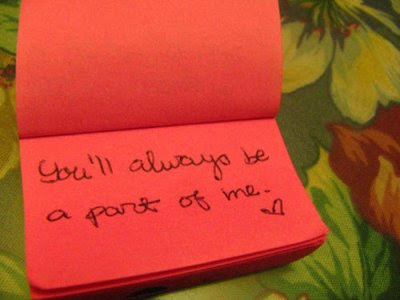 You'll always be
a part of me.